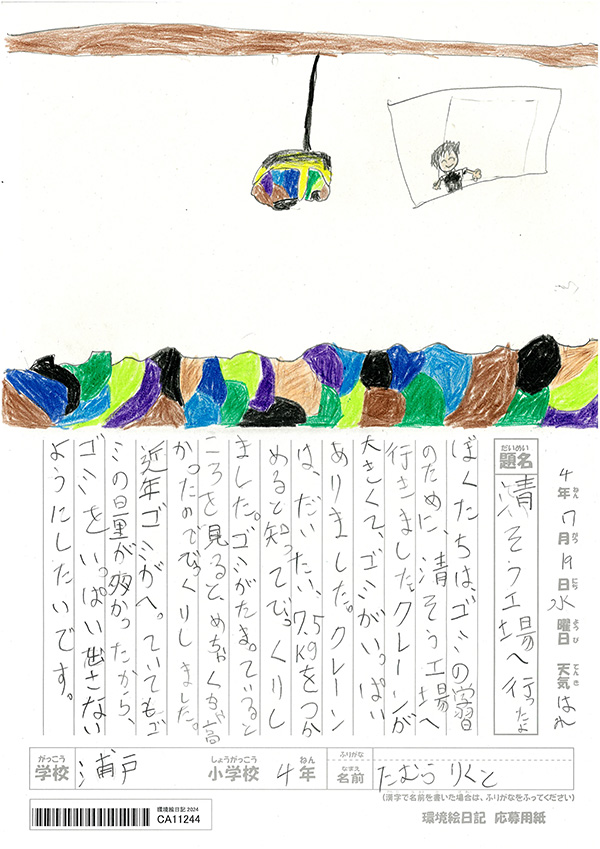 4年7月19日水曜日 天気はれ
だいめい
題名
清そう工場へ行ったよ
ぼくたちは、ゴミの習
のために、清そう工場へ
行きました。クレーンが
大きくて、ゴミがいっぱい
ありました。クレーン
は、だいたい、7.5kgをつか
めると知ってびっくりし
ました。ゴミがたまっていると
ころを見ると、めちゃくちゃ高
かったのでびっくりしました。
近年ゴミがへっていてもゴ
ミの量が多かったから、
ゴミをいっぱい出さない
ようにしたいです。
がっこう
学校
浦戸
しょうがっこう
小学校
4年
ふりがな
なまえ
名前
たむら りくと
(漢字で名前を書いた場合は、ふりがなをふってください)
環境絵日記 2024
CA11244
環境絵日記 応募用紙